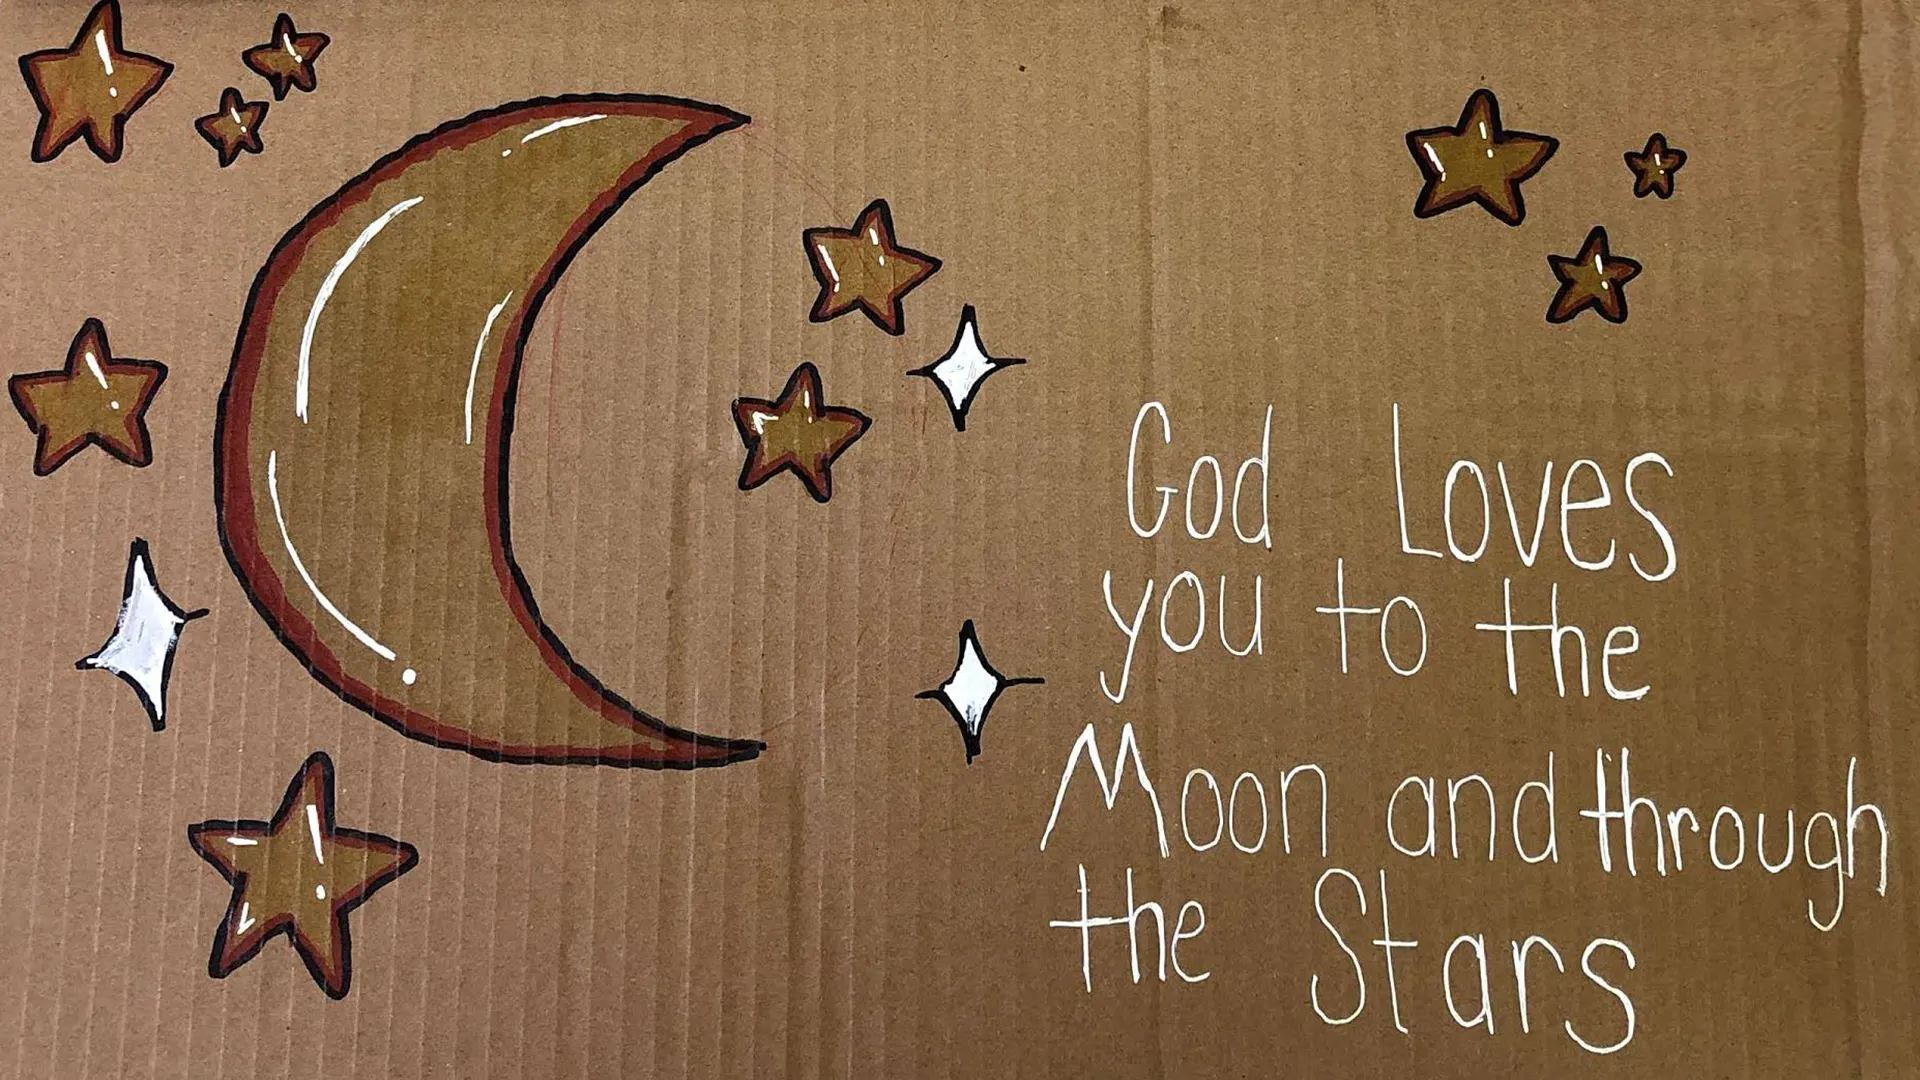 God Loves
you to the
Moon and through
the Stars